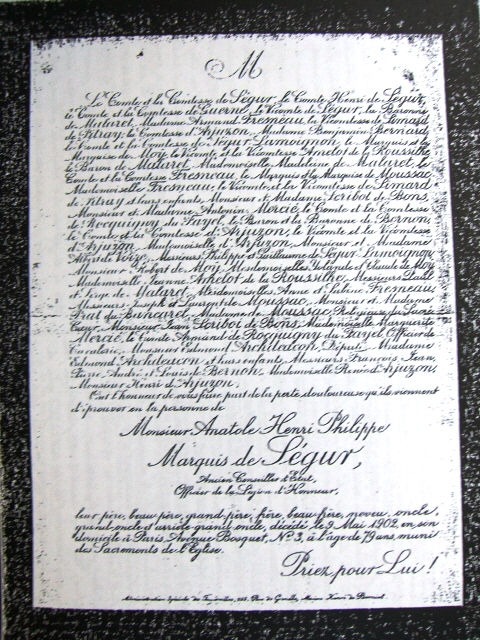 M
Le Comte et la Comtesse de Ségur, le Comte Henri de Ségur,
le Comte et la Comtesse de Guerne, le Vicomte de Ségur, la Baronne
de Malaret, Madame Armand Fresneau, la Vicomtesse de Simard
de Pitray, la Comtesse d'Arjuzon, Madame Benjamin Bernard,
le Comte et la Comtesse de Ségur Lamoignon, le Marquis et la
Marquise de Moy, le Vicomte et la Vicomtesse Amelot de la Roussilhe,
le Baron de Malaret, Mademoiselle Madeleine de Malaret, le
Comte et la Comtesse Fresneau, le Marquis et la Marquise de Moussac,
Mademoiselle Fresneau, le Vicomte et la Vicomtesse de Simard
de Pitray et leurs enfants, Monsieur et Madame Loribot de Bons,
Monsieur et Madame Antonin Mercié, le Comte et la Comtesse
de Rocquigny du Fayel, le Baron et la Baronne de Bernon,
le Comte et la Comtesse d'Arjuzon, le Vicomte et la Vicomtesse
d'Arjuzon, Mademoiselle d'Arjuzon, Monsieur et Madame
de Messieurs Philippe et Guillaume de Ségur Lamoignon,
Monsieur Robert de Moy, Mesdemoiselles Yolande et Claude de Moy,
Mademoiselle Jeanne Amelot de la Roussilhe, Messieurs
et Serge de Malaret, Mesdemoiselles Anne et Sabine Fresneau,
Messieurs Joseph et Laurent de Moussac, Monsieur et Madame
Prat du Madame de Moussac, Religieuse du Sacré
Cœur, Monsieur Jean Loribot de Bons, Mademoiselle Marguerite
Mercié, le Comte Armand de Rocquigny du Fayel, Officier de
Cavalerie, Monsieur Edmond Archdeacon, Député, Madame
Edmond Archdeacon et leurs enfants, Messieurs François, Jean,
Pierre, André et Louis de Bernon, Mademoiselle Renée d'Arjuzon,
Monsieur Henri d'Arjuzon,
Ont l'honneur de vous faire part de la perte douloureuse qu'ils viennent
d'éprouver en la personne de
Monsieur Anatole Henri Philippe
Marquis de Ségur,
Ancien Conseiller d'Etat,
Officier de la Légion d'Honneur,
leur père, beau-père, grand-père, frère, beau-frère, neveu, oncle,
grand-oncle et arrière grand-oncle, décédé, le 9 Mai 1902, en son
domicile à Paris, Avenue Bosquet, N° 3, à l'âge de 79 ans, muni
des Sacrements de l'Eglise.
Priez pour Lui !
Administration spéciale des Funérailles, Rue de Maison Henri de Borniol.